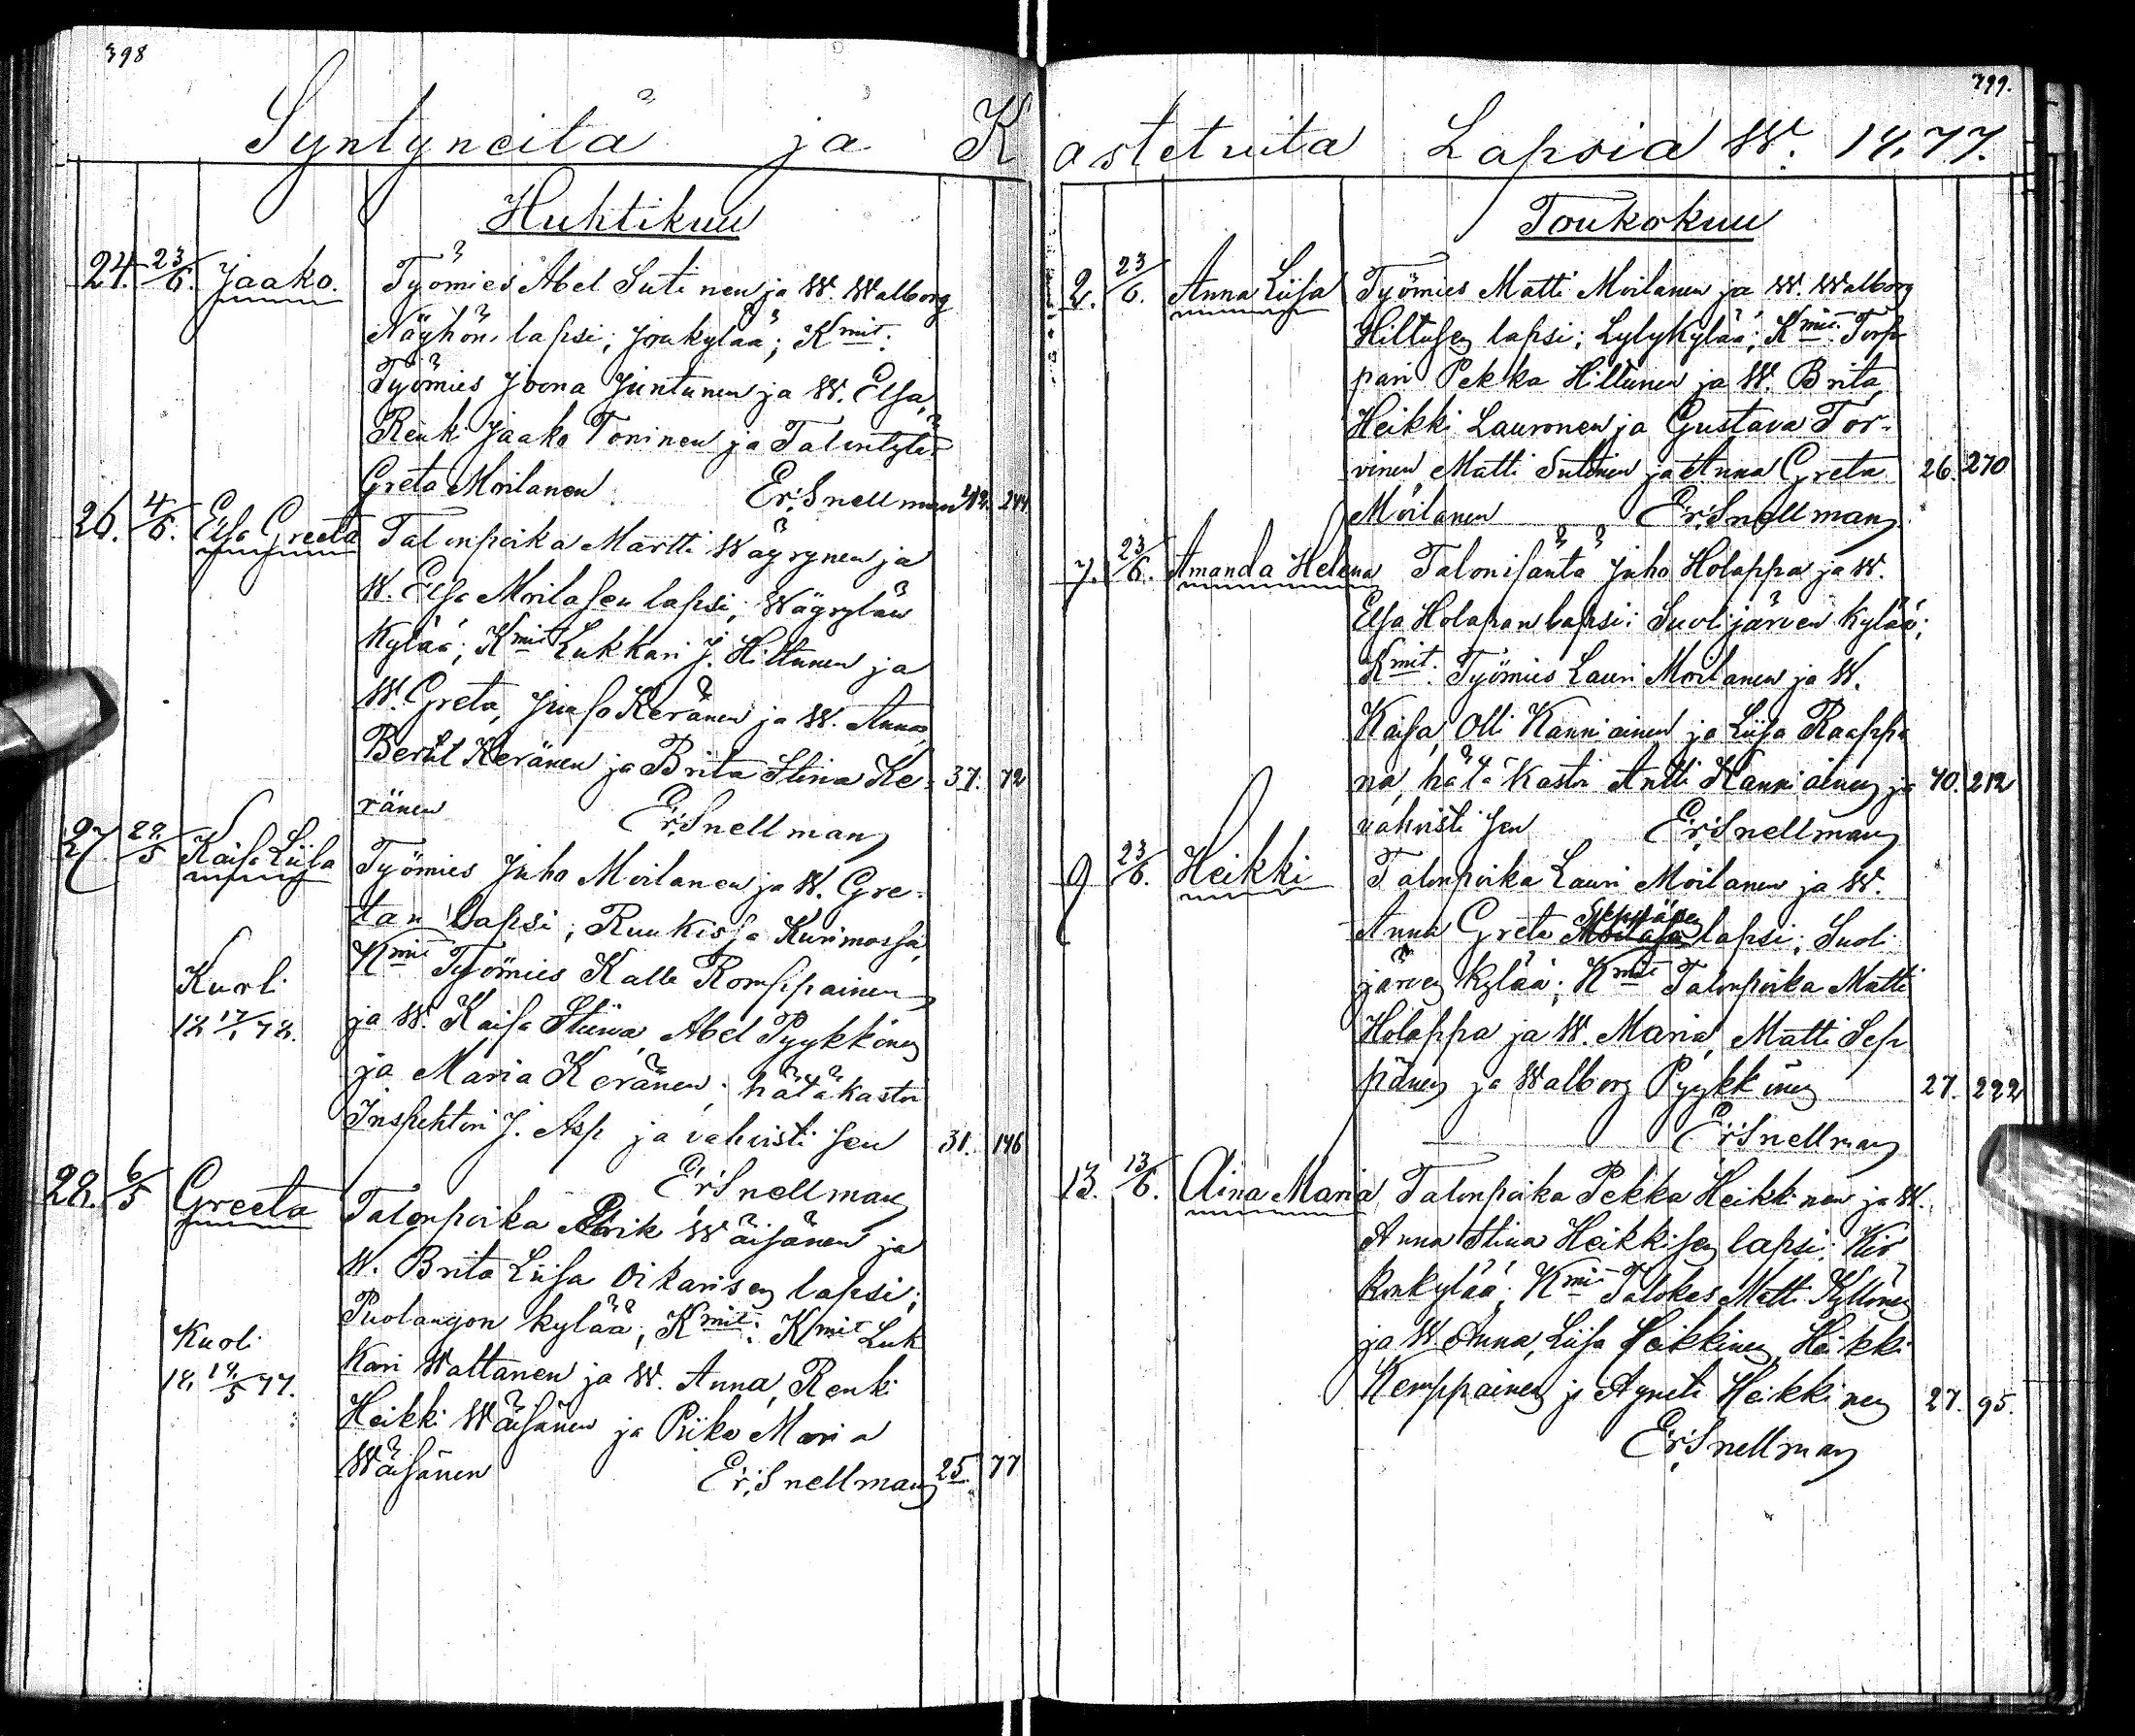 398
Syntyneitä ja K
Huhtikuu
24. 23/6. Jaako. Työmies Abel Sutinen ja W. Walborg
Näyhön lapsi; Jokikylää; Kmit:
Työmies Joona Juntunen ja W. Elsa,
Renki Jaako Toninen ja Talontytär
Greta Moilanen. Er. Snellman 42. 244
26. 4/6. Elsa Greeta Talonpoika Martti Wäyrynen ja
W. Elsa Moilasen lapsi; Wäyrylän
Kylää; Kmit Lukkari J. Hiltunen ja
W. Greta, Juaso Keränen ja W. Anna,
Bertil Keränen ja Brita Stina Ke- 37. 72
ränen Er. Snellman
27 28/5 Kaisa Liisa Työmies Juho Moilanen ja W. Gre-
tan lapsi; Ruukissa Kurimossa,
Kmit Työmies Kalle Romppainen
Kuoli
ja W. Kaisa Stiina, Abel Pyykkönen
18 17/1 78.
ja Maria Keränen; hätäkastoi
Inspehtori J. Asp ja vahvisti sen 31. 146
Er. Snellman
28. 6/5 Greeta Talonpoika Erik Wäisänen ja
W. Brita Liisa Oikarisen lapsi;
Puolangon kylää; Kmit: Kmit Luk
Kuoli
kari Wattanen ja W. Anna, Renki
18 18/5 77.
Heikki Wäisänen ja Piika Maria
Wäisänen Er. Snellman 25. 77
399.
astetuita Lapsia W. 1877.
Toukokuu
2. 23/6. Anna Liisa Työmies Matti Moilanen ja W. Walborg
Hiltusen lapsi; Lylykylää; Kmit. Torp
pari Pekka Hiltunen ja W. Brita,
Heikki Lauronen ja Gustava Tor-
vinen, Matti Sutinen ja Anna Greta 26. 270
Moilanen Er. Snellman
7. 23/6. Amanda Helena Talonisäntä Juho Holappa ja W.
Elsa Holapan lapsi; Suolijärven kylää;
Kmit. Työmies Lauri Moilanen ja W.
Kaisa, Olli Kanniainen ja Liisa Raappa
na, hätäkastoi Antti Kanniainen ja 40. 212
vahvisti sen Er. Snellman
9 23/6. Heikki Talonpoika Lauri Moilanen ja W.
Seppäsen
Anna Greta Moilasen lapsi; Suoli
järven kylää; Kmit Talonpoika Matti
Holappa ja W. Maria, Matti Sep
pänen ja Walborg Pyykkönen 27. 222
Er. Snellman
13. 13/6. Aina Maria Talonpoika Pekka Heikkinen ja W.
Anna Stina Heikkisen lapsi; Kir
konkylää; Kmit Talokas Matti Kyllönen
ja W. Anna, Liisa Heikkinen, Heikki
Kemppainen ja Agneta Heikkinen 27. 95.
Er. Snellman